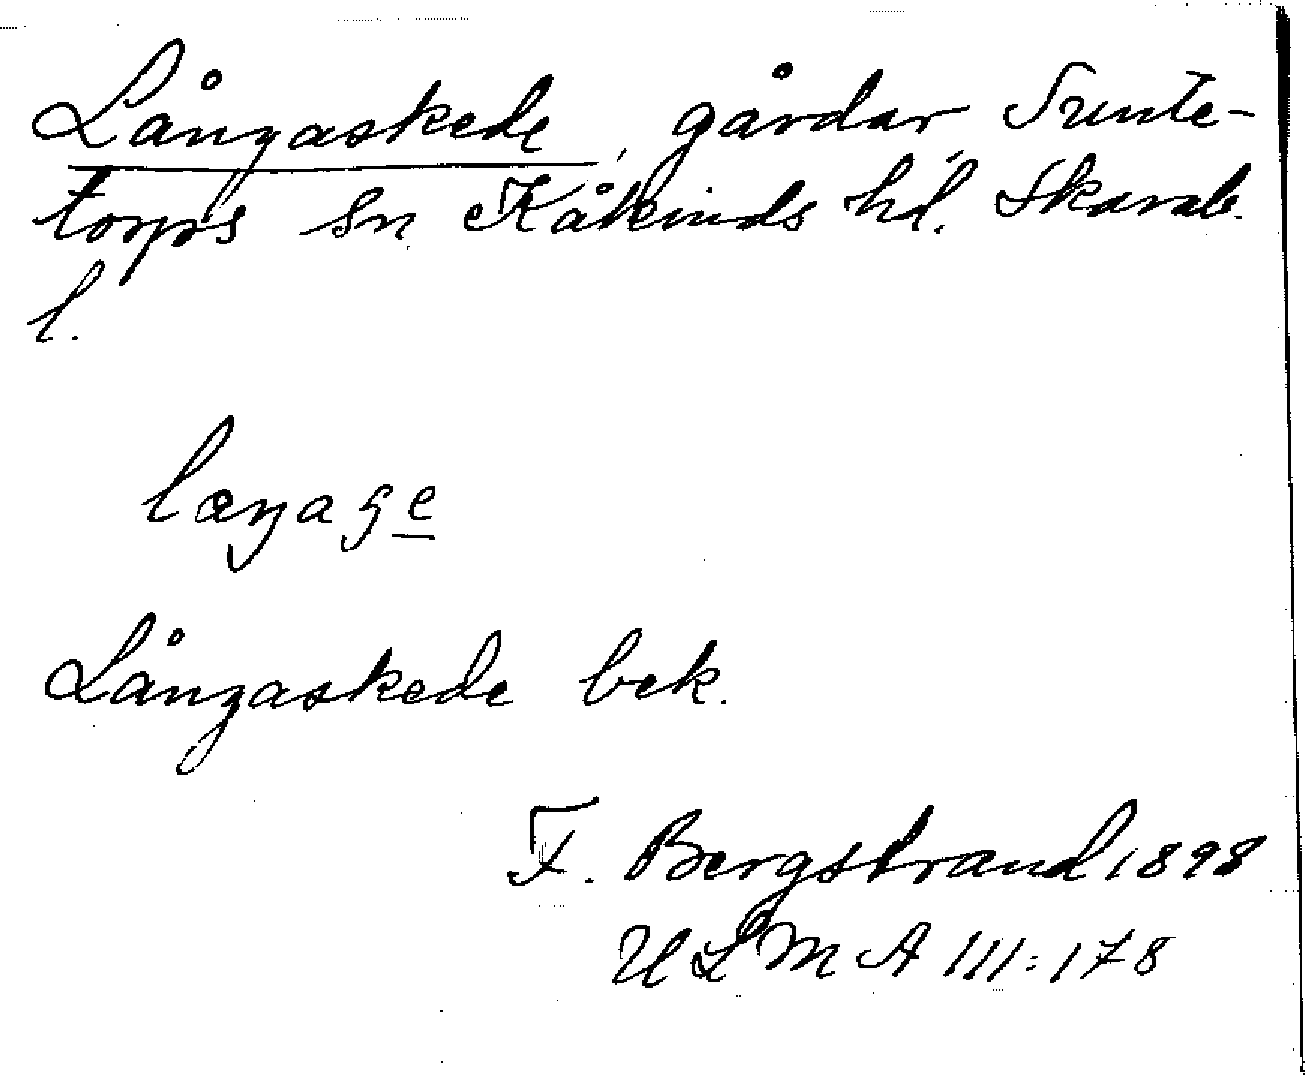 Långaskede, gårdar Sunte-
torps sn Kåkinds hd. Skarab.
l.
læŋaʂe
Långaskede bek.
F. Bergstrand 1898
ULMA 111:178